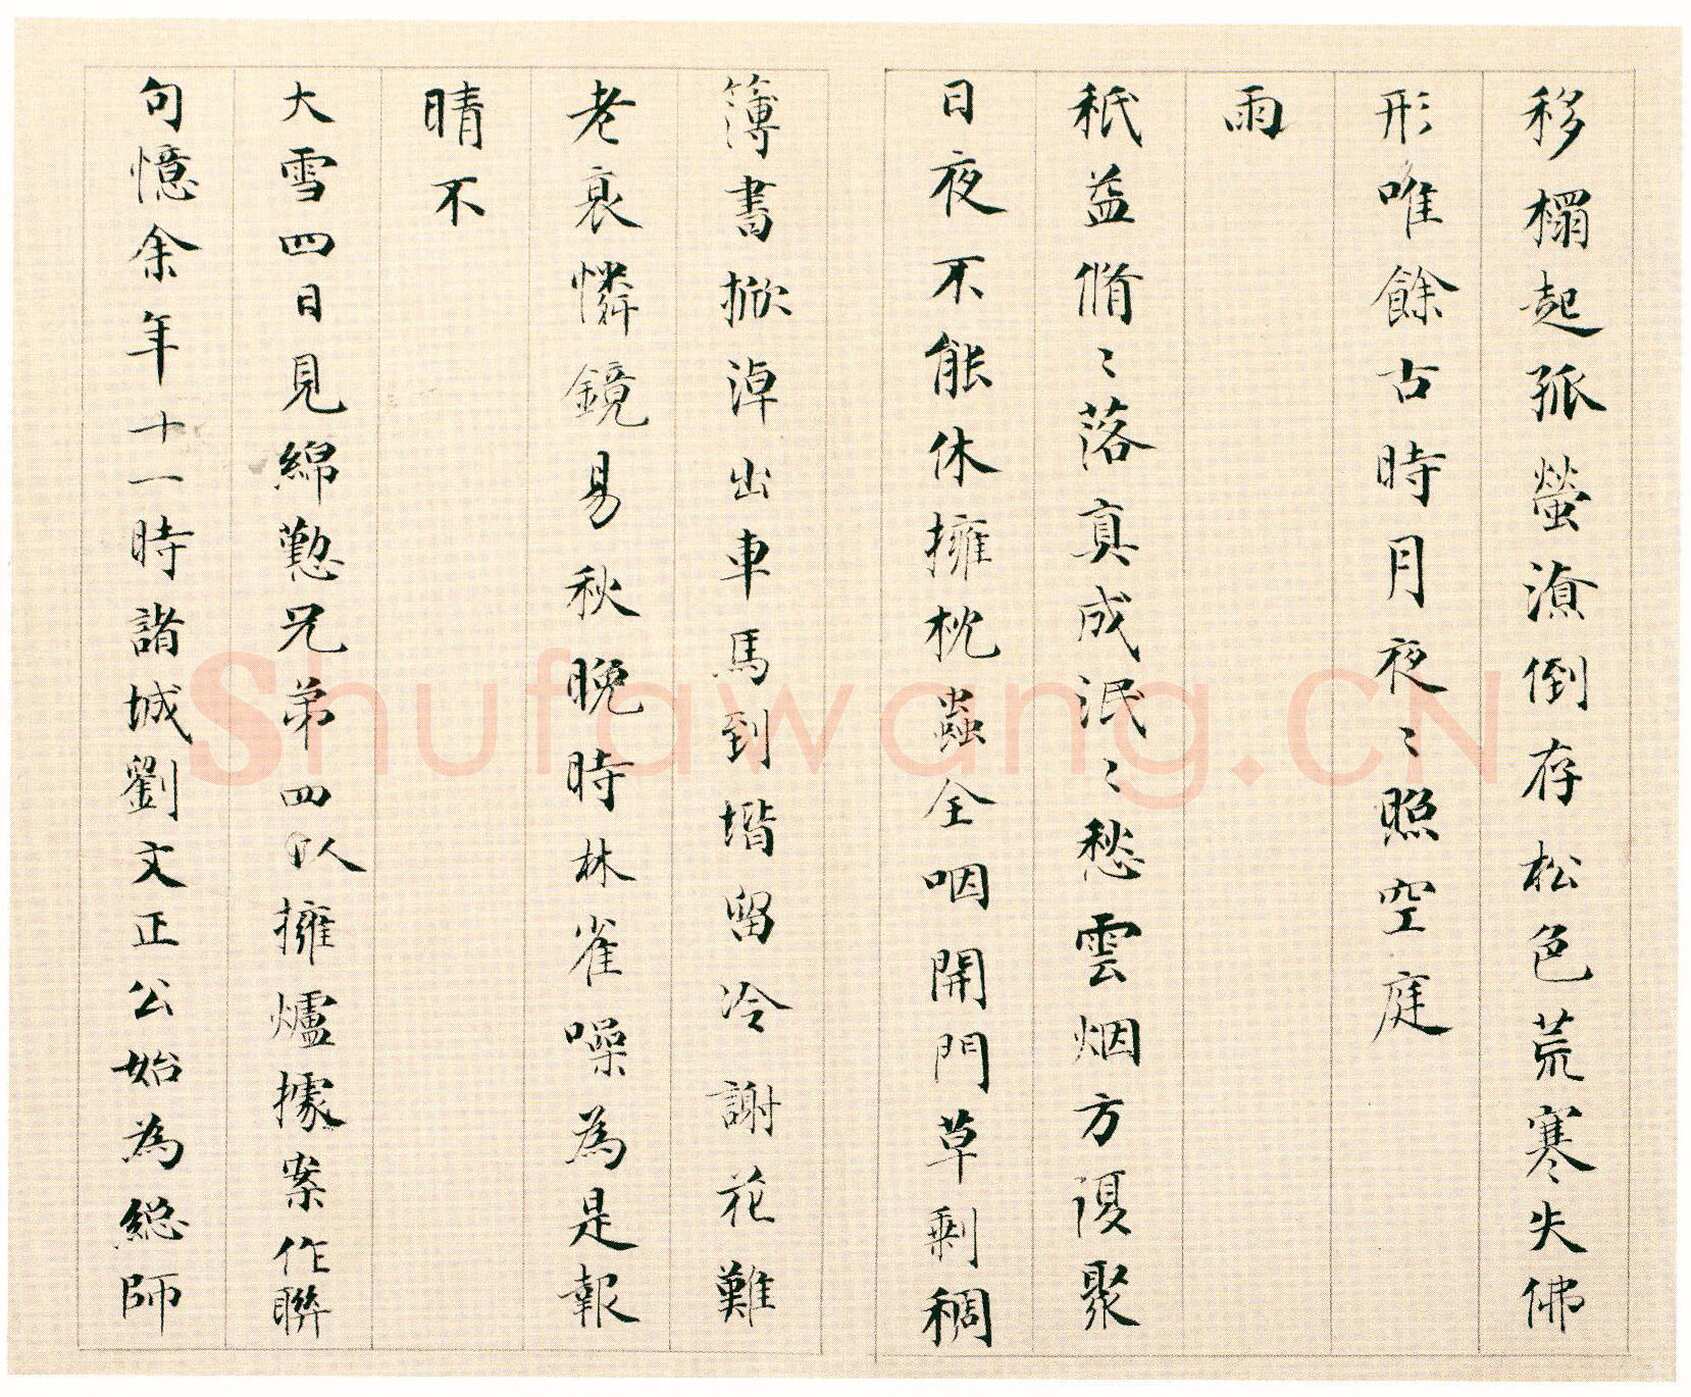 移榻起孤螢湌倒存松色荒寒失佛
形唯餘古時月夜〻照空庭
雨
秖益脩〻落真成泯〻愁雲烟方復聚
日夜不能休擁枕蟲全咽開門草剩稠
簿書掀淖出車馬到堦留冷謝花難
老衰憐鏡易秋晚時林雀噪為是報
晴不
大雪四日見綿懃兄弟四人擁爐據案作聯
句憶余年十一時諸城劉文正公始為總師
Shufawang.CN